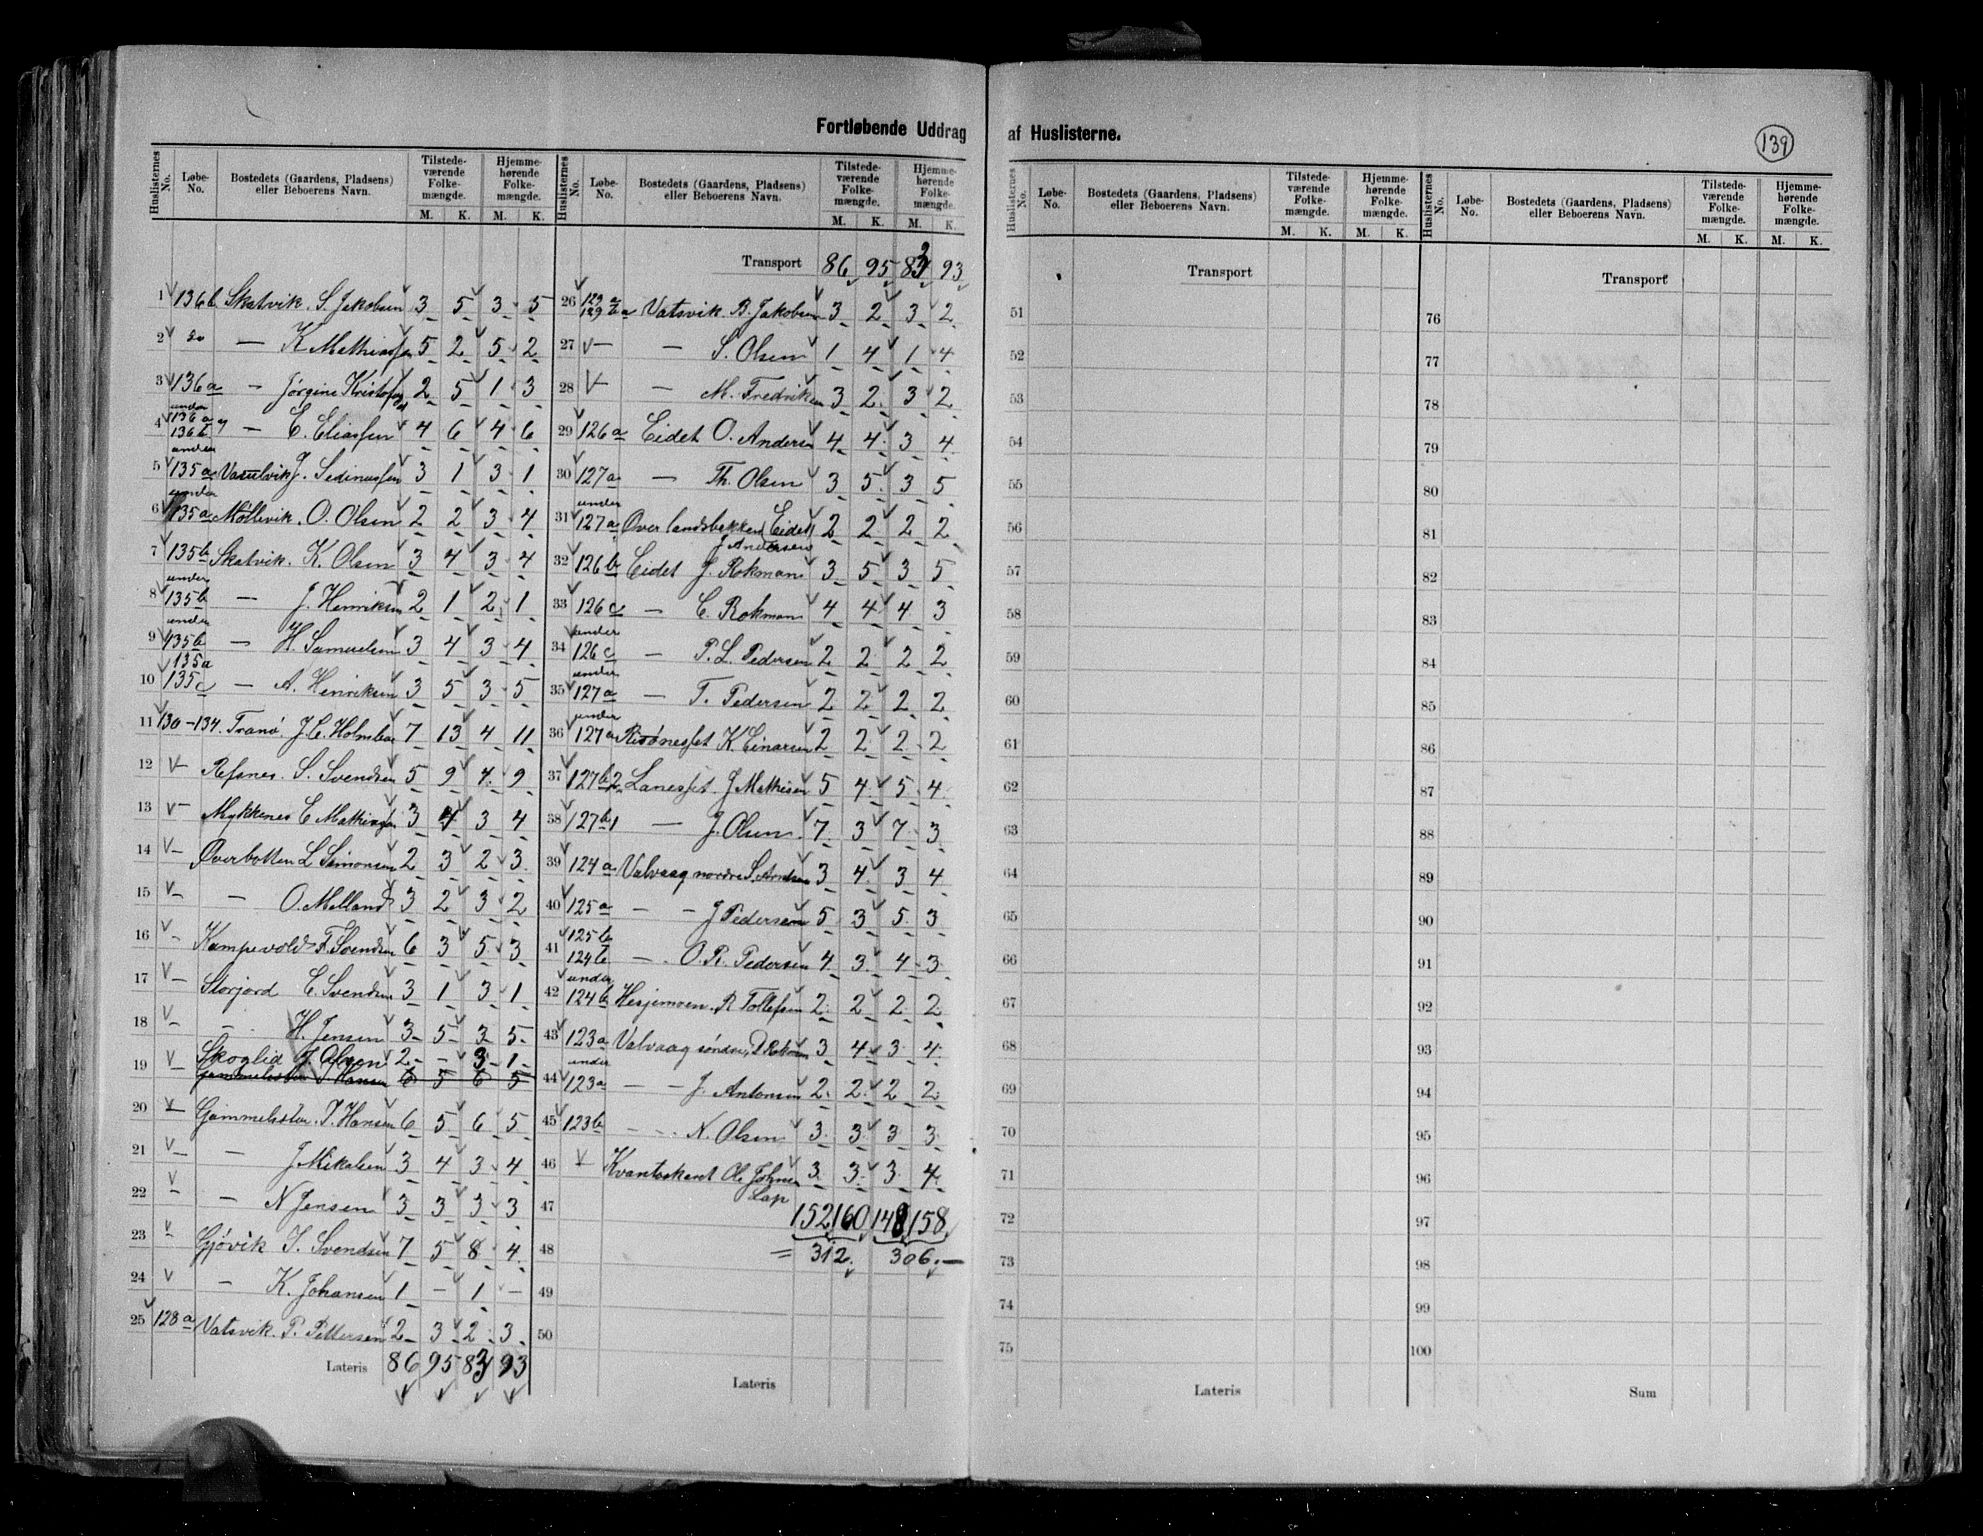 Fortløbende Uddrag af Huslisterne.
139
Huslisternes No. Løbe-No. Bostedets (Gaardens, Pladsens) eller Beboerens Navn. Tilstedeværende Folkemængde. M. K. Hjemmehørende Folkemængde. M. K.
1 136b Skatvik S. Jakobsen 3 5 3 5
2 do — K Mathiassen 5 2 5 2
3 136a — Jørgine Kristofersd 2 5 1 3
4 under 136a og 136b — E. Eliassen 4 6 4 6
5 under 135a J. Sedinussen 3 1 3 1
6 under 135a Møllevik. O. Olsen 2 2 3 4
7 135b Skatvik. K. Olsen 3 4 3 4
8 under 135b — J. Henriksen 2 1 2 1
9 under 135b 135a — H. Samuelsen 3 4 3 4
10 135c — A. Henriksen 3 5 3 5
11 130-134. Tranø. J. C. Holmboe 7 13 4 11
12 — Refsnes. S. Svendsen 5 9 4 9
13 — Mykkenes E Mathiassen 3 4 3 4
14 — Øverbotten L Simonsen 2 3 2 3
15 — — O. Melland 3 2 3 2
16 — Kampevold F. Svendsen 6 3 5 3
17 — Storjord E. Svendsen 3 1 3 1
18 — — H. Jensen 3 5 3 5
19 — Skoglid J Olsen 2 - 3 1
Gammelseter P Hansen 6 5 6 5
20 — Gammelseter. P. Hansen 6 5 6 5
21 — — J Mikalsen 3 4 3 4
22 — — N Jensen 3 3 3 3
23 — Gjøvik I. Svendsen 7 5 8 4
24 — K. Johansen 1 - 1 -
25 128a Vatsvik. P. Pettersen 2 3 2 3
Lateris 86 95 83 93
Huslisternes No. Løbe-No. Bostedets (Gaardens, Pladsens) eller Beboerens Navn. Tilstedeværende Folkemængde. M. K. Hjemmehørende Folkemængde. M. K.
Transport 86 95 83 93
26 129a Vatsvik B. Jakobsen 3 2 3 2
27 — — S. Olsen 1 4 1 4
28 — — M. Fredriksen 3 2 3 2
29 126a Eidet O. Andersen 4 4 3 4
30 127a — Th. Olsen 3 5 3 5
31 under 127a Øverlandsbakken (Eidet) 2 2 2 2
J Andersen
32 126b Eidet J. Rokman 3 5 3 5
33 126c — C. Rokman 4 4 4 3
34 under 126c — P. L. Pedersen 2 2 2 2
35 under 127a — T. Pedersen 2 2 2 2
36 under 127a K. Einarsen 2 2 2 2
37 127b2 Lanesset. J Mathisen 5 4 5 4
38 127b1 — J. Olsen 7 3 7 3
39 124a Valvaag nordre S. Arntsen 3 4 3 4
40 125a — — J Pedersen 5 3 5 3
41 125b 124b — O. R. Pedersen 4 3 4 3
42 under 124b Hesjemoen. R Tollefsen 2 2 2 2
43 123a Valvaag søndre, P Rokman 3 4 3 4
44 under 123a — — J. Antonsen 2 2 2 2
45 123b — — N. Olsen 3 3 3 3
46 — Kvantoskaret Ole Johnsen 3 3 3 4
Lap
47 152 160 148 158
48 = 312. 306.—
49
50
Lateris
Huslisternes No. Løbe-No. Bostedets (Gaardens, Pladsens) eller Beboerens Navn. Tilstedeværende Folkemængde. M. K. Hjemmehørende Folkemængde. M. K.
Transport
51
52
53
54
55
56
57
58
59
60
61
62
63
64
65
66
67
68
69
70
71
72
73
74
75
Lateris
Huslisternes No. Løbe-No. Bostedets (Gaardens, Pladsens) eller Beboerens Navn. Tilstedeværende Folkemængde. M. K. Hjemmehørende Folkemængde. M. K.
Transport
76
77
78
79
80
81
82
83
84
85
86
87
88
89
90
91
92
93
94
95
96
97
98
99
100
Sum